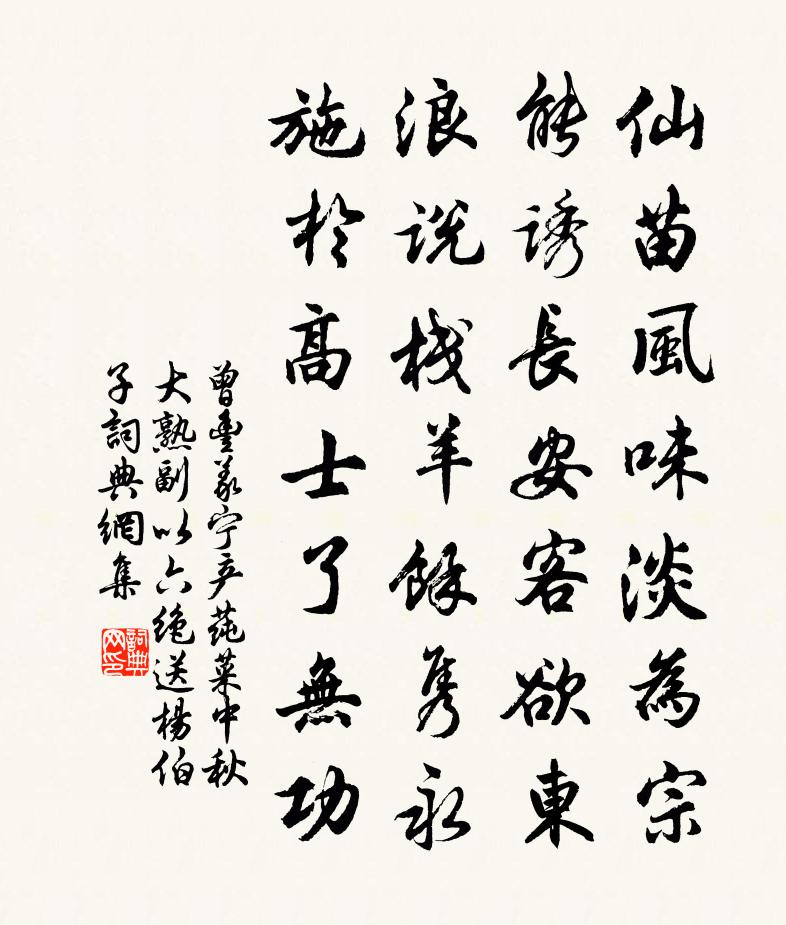 仙苗風味淡為宗
能誘長安客欲東
浪說棧羊餘雋永
施於高士了無功
曾豐義宁产莼菜中秋
大熟副以六絶送楊伯
子詞典網集
詞典网印